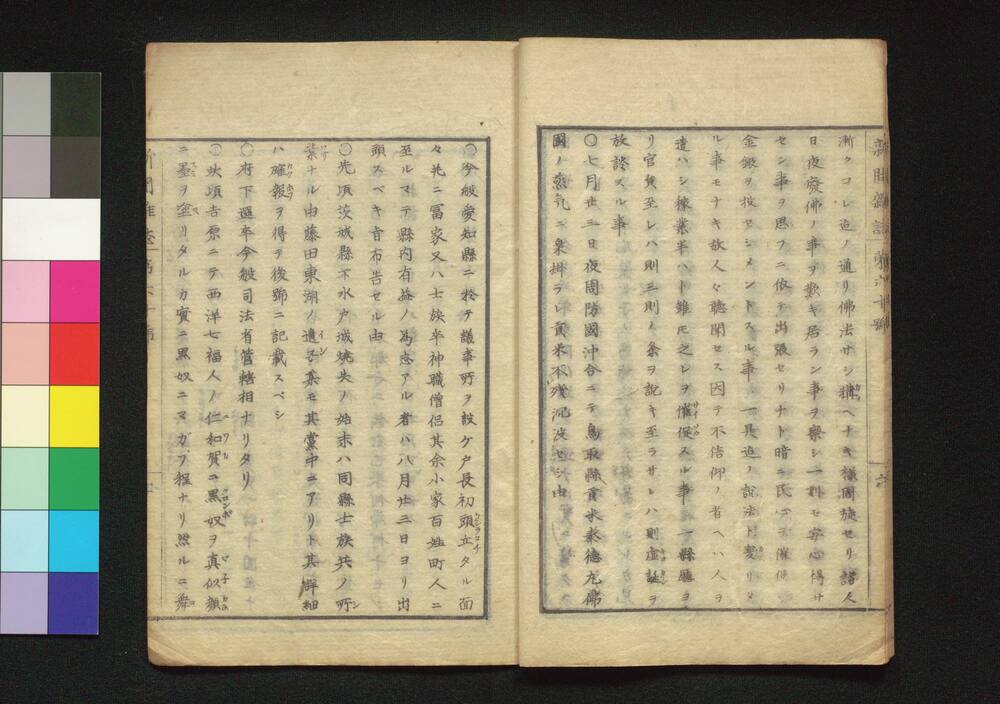 新聞雜誌 第六十號
漸クコレ迠ノ通リ佛法サシ構ヘナキ様周旋セリ諸人
日夜廢佛ノ事ヲ歎キ居ラン事ヲ察シ一刻モ安心得サ
セン事ヲ思フニ依テ出張セリナト暗ニ民心ヲ催促
金銀ヲ投セシメントスル事 一是迠ノ說法ト変リタ
ル事モナキ故人々聽聞セス因テ不信仰ノ者ヘハ人ヲ
遣ハシ稼業半ハト雖モ之レヲ催促スル事 一縣廳ヨ
リ官員至レハ則三則ノ条ヲ說キ至ラサレハ則虛誕ヲ
放談スル事
〇七月廿三日夜周防國沖合ニテ鳥取縣貢米泰德丸佛
國ノ蒸氣ニ乗掛ラレ貢米不残沉没セシ由
〇今般愛知縣ニ於テ議事所ヲ設ケ戸長初頭立タル面
々并ニ冨家又ハ士族卒神職僧侶其余小家百姓町人ニ
至ルマテ縣内有益ノ爲志アル者ハ八月廿三日ヨリ出
頭スベキ旨布告セル由
〇先頃茨城縣下水戸城焼失ノ始末ハ同縣士族共ノ所
業ナル由藤田東湖ノ遺子某モ其黨中ニアリト其詳細
ハ確報ヲ得テ後號ニ記載スベシ
〇府下邏卒今般司法省管轄相ナリタリ
〇此頃吉原ニテ西洋七福人ノ仁和賀ニ黒奴ヲ真似顔
ニ墨ヲ塗リタルカ實ニ黒奴ニマガフ程ナリ然ルニ舞
新聞雜誌 第六十號